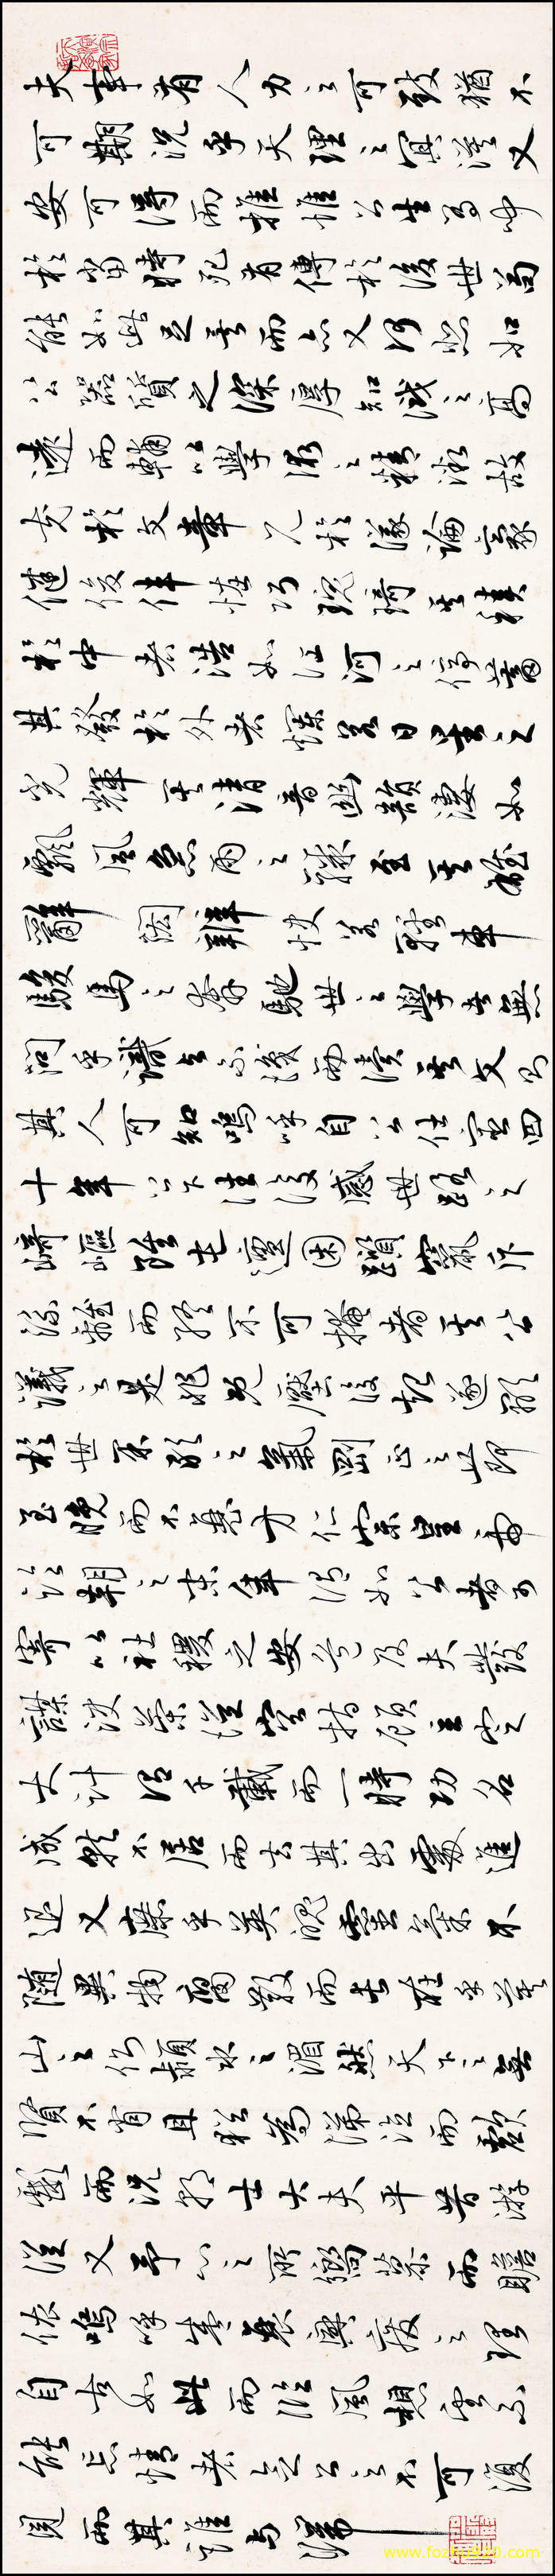 夫事有人力之可致猶不
可期況乎天理之溟漠又
安可得而推惟公生有聞
於當時死有傳於後世苟
能如此足矣而亦又何悲如
公器質之深厚知識之高
遠而輔以學術之精微故
充於文章見於議論豪
健俊偉怪巧瑰琦其積
於中者浩如江河之停蓄
其發於外者爛若日星之
光輝其清音幽韻淒如
飄風急雨之驟至其雄
辭閎辯快若輕車
駿馬之奔馳世之學者無
問乎識與不識而讀其文則
其人可知嗚呼自公仕宦四
十年上下往復感世路之
崎嶇雖屯邅困躓竄斥
流離而終不可掩者其公
議之是非既壓復起遂顯
於世果敢之氣剛正之節
至晚而不衰方仁宗皇帝
臨朝之末年謂如公者可
寄以社稷之安危及夫發
謀決策從容指顧立定
大計謂千載而一時功名
成就不居而去其出處進
退又庶乎英魄靈氣不
隨異物腐散而長在乎箕
山之側潁水之湄然天下之無
賢不肖且猶為涕泣而歔
欷而況朝士大夫平昔游
從又予心之所嚮慕而瞻
依嗚呼盛衰興廢之理
自古如此而臨風想望不
能忘情者念公之不可復
見而其誰與歸
www.fozhu920.com